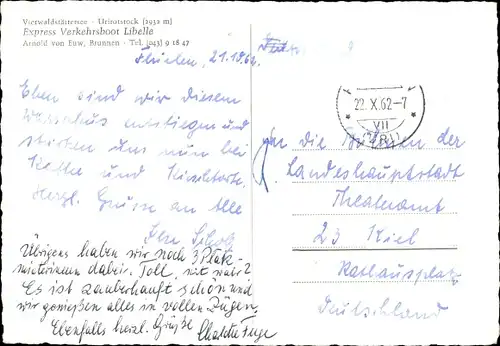 Vierwaldstättersee - Urirotstock (2932 m)
Express Verkehrsboot Libelle
Arnold von Euw, Brunnen - Tel. (043) 9 18 47
Flüelen, 21.10.62.
Eben sind wir diesem
entstiegen und
stärken uns nun bei
Kaffee und Kirschtorte.
Herzl. Grüsse an Alle
Übrigens haben wir noch 3 Plak-
dabei. Toll, nit wahr?
Es ist zauberhaft schön und
wir genießen alles in vollen Zügen.
Ebenfalls herzl. Grüße
22. X. 62 - 7
VII
An die Bühnen der
Landeshauptstadt
Theateramt
23 Kiel
Rathausplatz
Deutschland